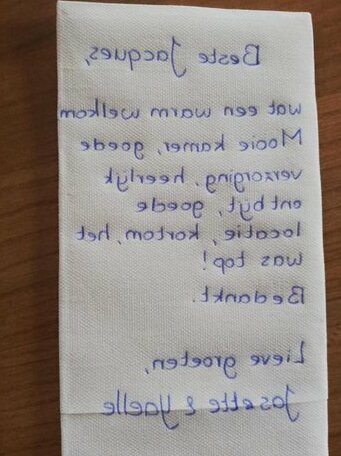 Beste Jacques,
wat een warm welkom
Mooie kamer, goede
verzorging, heerlijk
ontbijt, goede
locatie, kortom, het
was top!
Bedankt.
Lieve groeten,
Josette & Yaelle